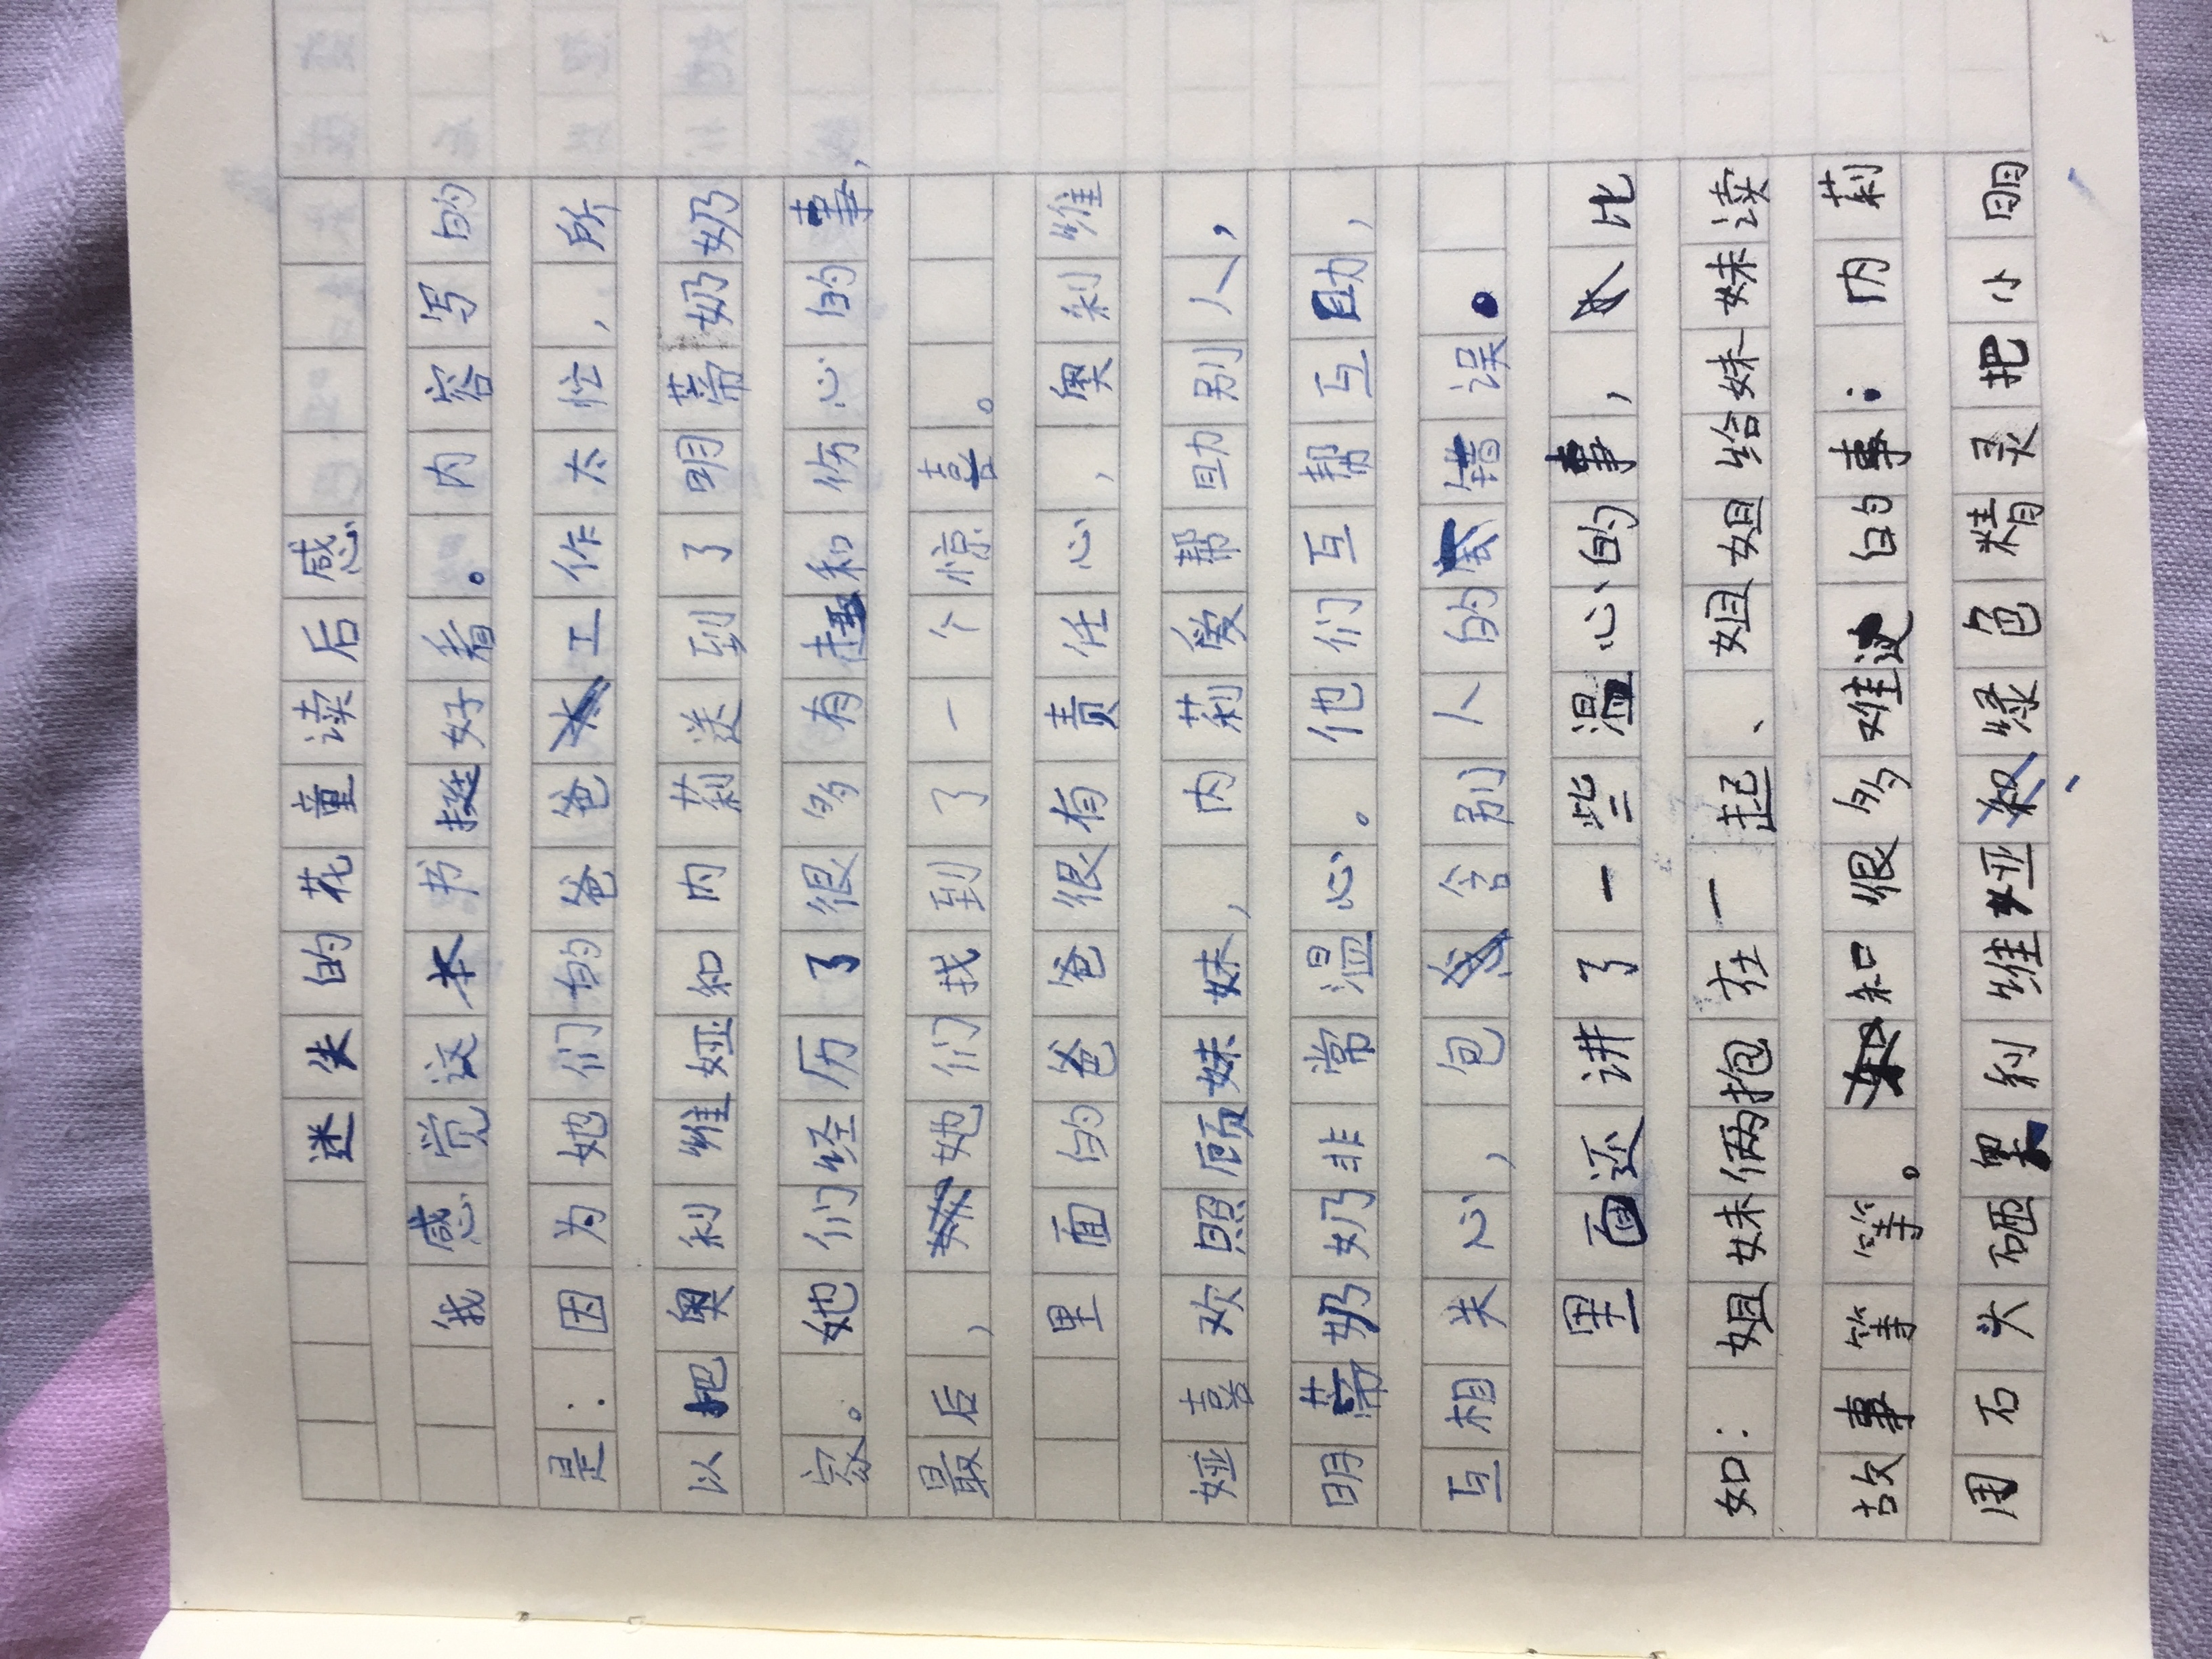 迷失的花童读后感
我感觉这本书挺好看。内容写的
是：因为她们的爸爸工作太忙，所
以把奥利维娅和内莉送到了明蒂奶奶
家。她们经历了很多有趣和伤心的事，
最后，她们找到了一个惊喜。
里面的爸爸很有责任心，奥利维
娅喜欢照顾妹妹，内莉爱帮助别人，
明蒂奶奶非常温心。他们互帮互助，
互相关心，包含别人的错误。
里面还讲了一些温心的事，比
如：姐妹俩抱在一起、姐姐给妹妹读
故事等等。和很多难过的事：内莉
用石头砸奥利维娅绿色精灵把小明